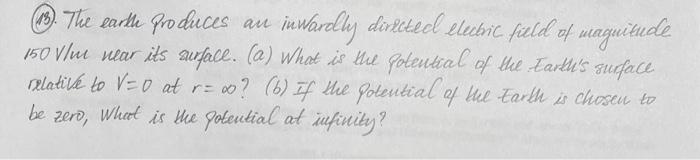 (13). The earth produces an inwardly directed electric field of magnitude
150 V/m near its surface. (a) What is the potential of the Earth's surface
relative to V=0 at r=∞? (b) If the potential of the Earth is chosen to
be zero, What is the potential at infinity?